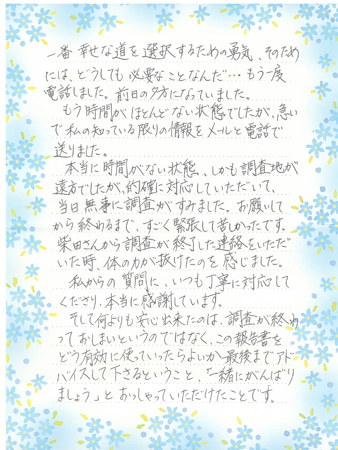 一番幸せな道を選択するための勇気、そのため
には、どうしても必要なことなんだ…もう一度
電話しました。前日の夕方になっていました。
もう時間がほとんどない状態でしたが、急い
で私の知っている限りの情報をメールと電話で
送りました。
本当に時間がない状態、しかも調査地が
遠方でしたが、的確に対応していただいて、
当日無事に調査がすみました。お願いして
から終わるまで、すごく緊張して苦しかったです。
柴田さんから調査が終了した連絡をいただ
いた時、体の力が抜けたのを感じました。
私からの質問に、いつも丁寧に対応して
くださり、本当に感謝しています。
そして何よりも安心出来たのは、調査が終わ
っておしまいというのではなく、この報告書を
どう有効に使っていったらよいか最後までアド
バイスして下さるということ、「一緒にがんばり
ましょう」とおっしゃっていただけたことです。